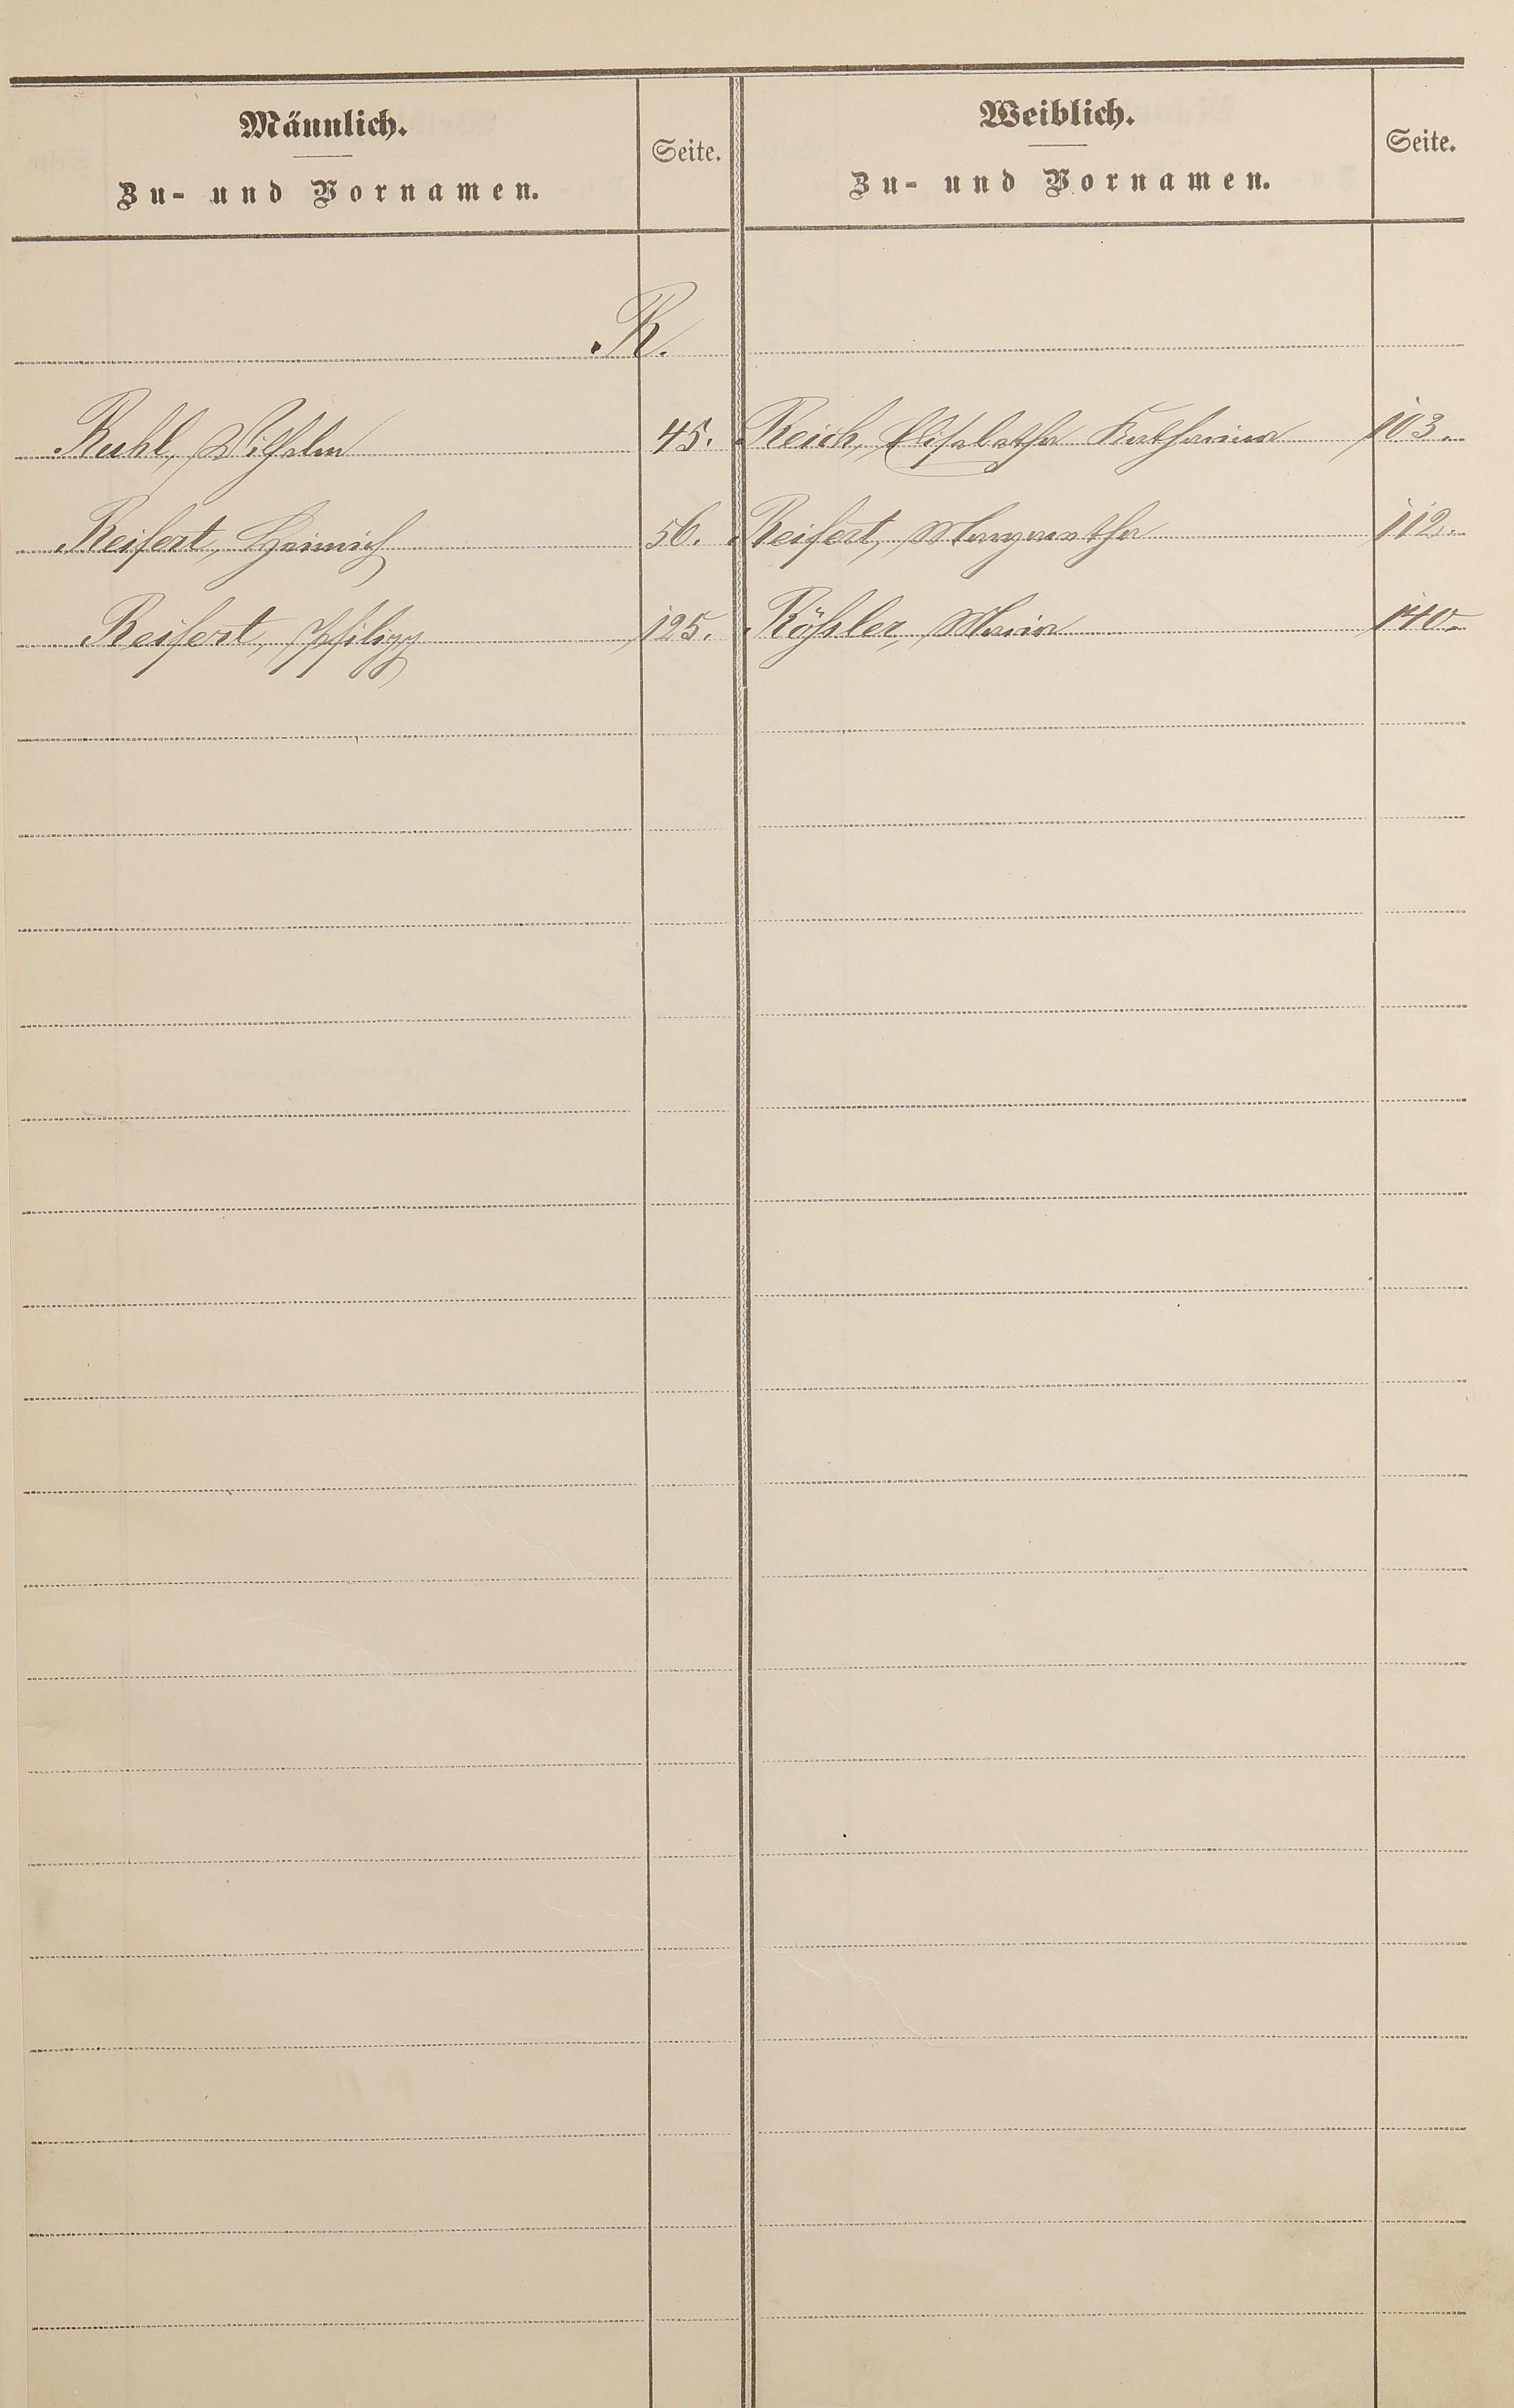 Männlich.
Zu- und Vornamen.
Seite.
Weiblich.
Zu- und Vornamen.
Seite.
R.
Ruhl, Wilhelm 45. Reich, Elisabetha Katharina 103.
Reifert, Heinrich 56. Reifert, Margaretha 112.
Reifert, Philipp 125. Rößler, Maria 140.